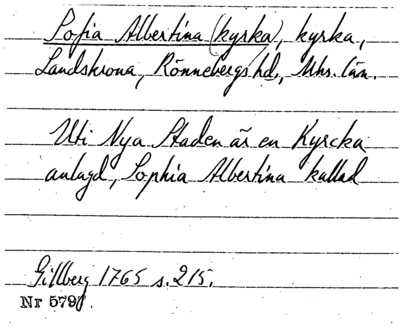 Sofia Albertina (kyrka), kyrka,
Landskrona, Rönnebergs hd., Mhs. län.
Uti Nya Staden är en Kyrcka
anlagd, Sophia Albertina kallad
Gillberg 1765 s. 215.
Nr 579